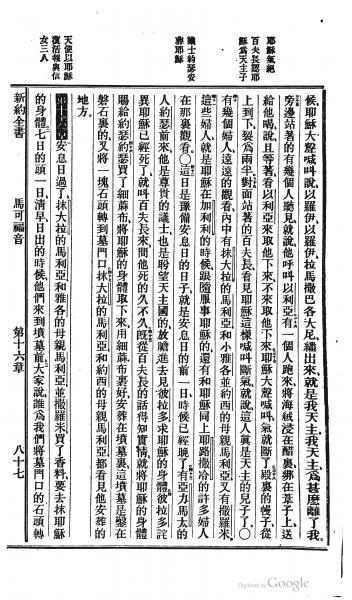 耶穌氣絕
百夫長認耶
穌爲天主子
義士約瑟安
葬耶穌
天使以耶穌
復活報與信
女三人
候耶穌大聲喊叫說以羅伊以羅伊拉馬撒巴各大尼繙出來就是我天主我天主爲甚麼離了我
旁邊站著的有幾個人聽見就說他呼叫以利亞有一個人跑來將海絨浸在醋裏綁在葦子上送
給他喝說且等著看以利亞來取他下來不來取他下來耶穌大聲喊叫氣就斷了殿裏的幔子從
上到下裂爲兩半對面站著的百夫長看見耶穌這樣喊叫斷氣就說這人眞是天主的兒子了〇
有幾個婦人遠遠的觀看內中有抹大拉的馬利亞和小雅各並約西的母親馬利亞又有撒羅米
這些婦人就是耶穌在加利利的時候跟隨服事耶穌的還有和耶穌同上耶路撒冷的許多婦人
在那裏觀看〇這日是豫備安息日的日子就是安息日的前一日時候已經晚了有亞力馬太的
人約瑟前來他是尊貴的議士也是聆望天主國的放膽進去見彼拉多求耶穌的身體彼拉多詫
異耶穌已經死了就叫百夫長來問他死的久不久旣從百夫長的話得知實情就將耶穌的身體
賜給約瑟約瑟買了細蔴布將耶穌的身體取下來用細蔴布裹好安葬在墳墓裏這墳墓是鑿在
磐石裏的又將一塊石頭轉到墓門口抹大拉的馬利亞和約西的母親馬利亞都看見他安葬的
地方
第十六章安息日過了抹大拉的馬利亞和雅各的母親馬利亞並撒羅米買了香料要去抹耶穌
的身體七日的頭一日淸早日出的時候他們來到墳墓前大家說誰爲我們將墓門口的石頭轉
新約全書 馬可福音 第十六章 八十七
Digitized by Google